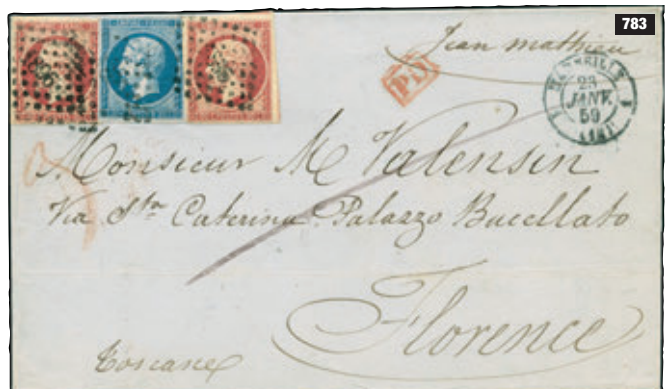 783
Jean Mathieu
PD
MARSEILLE
23
JANV.
59
Monsieur M Valensin
Via Sta Caterina Palazzo Bucellato
Florence
Toscane